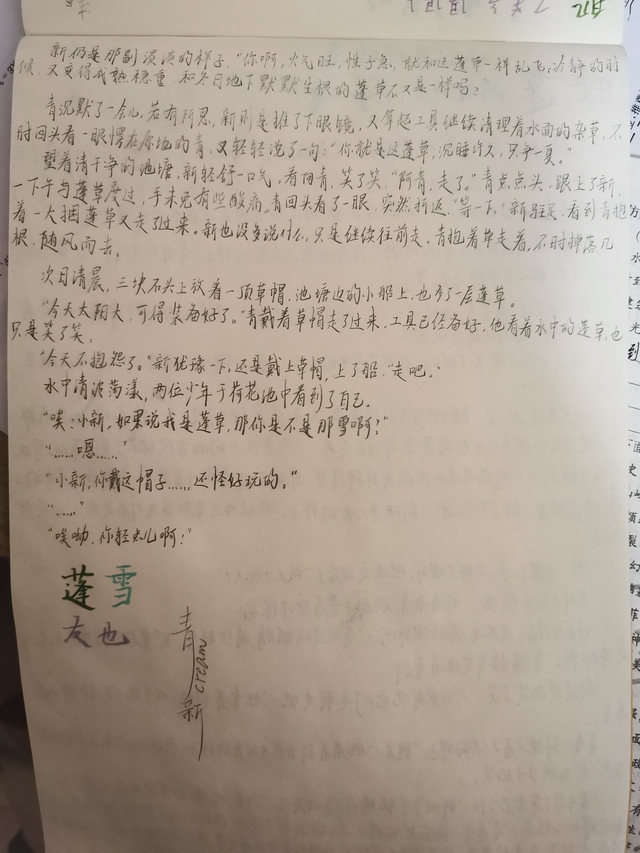 新仍是那副淡淡的样子，“你啊，火气旺，性子急，就和这蓬草一样乱飞，冷静的时
候，又变得成熟稳重，和冬日地下默默生根的蓬草不又是一样吗？”
青沉默了一会儿，若有所思，新则是推了下眼镜，又拿起工具继续清理着水面的杂草，不
时回头看一眼愣在原地的青，又轻轻说了一句：“你就是这蓬草，沉睡许久，只争一夏。”
望着清干净的池塘，新轻舒一口气，看向青，笑了笑，“阿青，走了。”青点点头，跟上了新，
一下午与蓬草度过，手未免有些酸痛，青回头看了一眼，突然折返，“等一下。”新驻足，看到青抱
着一大捆蓬草又走了过来，新也没多说什么，只是继续往前走，青抱着草走着，不时掉落几
根，随风而去。
次日清晨，三块石头上放着一顶草帽，池塘边的小船上，也多了一层蓬草。
“今天太阳大，可得装备好了。”青戴着草帽走了过来，工具已经备好，他看着水中的蓬草，也
只是笑了笑。
“今天不抱怨了。”新犹豫一下，还是戴上草帽，上了船，“走吧。”
水中清波荡漾，两位少年于荷花池中看到了自己。
“唉，小新，如果说我是蓬草，那你是不是那雪啊？”
“……嗯……”
“小新，你戴这帽子……还怪好玩的。”
“……”
“唉呦，你轻点儿啊！”
蓬雪
友也
青
cream
新